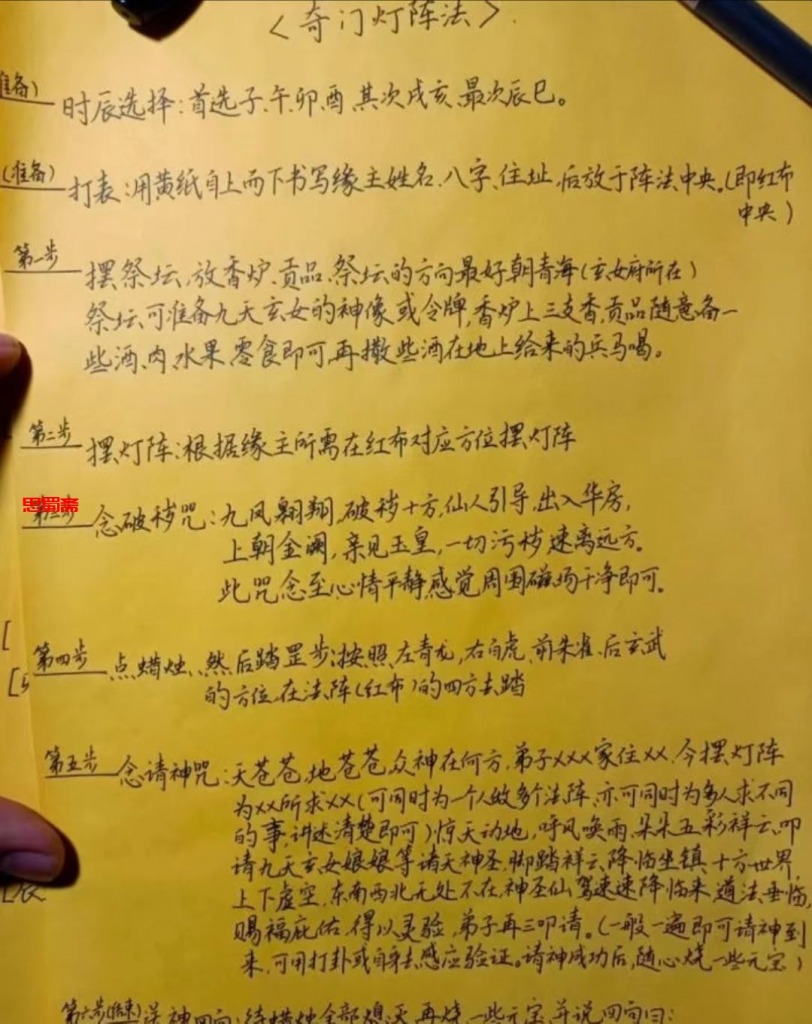 ＜奇门灯阵法＞.
准备) 时辰选择：首选子、午、卯、酉、其次戌亥、最次辰巳。
(准备) 打表：用黄纸自上而下书写缘主姓名、八字、住址，后放于阵法中央。(即红布
中央)
第一步 摆祭坛，放香炉、贡品、祭坛的方向最好朝青海(玄女府所在)
祭坛可准备九天玄女的神像或令牌，香炉上三支香，贡品随意备一
些酒、肉、水果、零食即可，再撒些酒在地上给来的兵马喝。
第二步 摆灯阵：根据缘主所需在红布对应方位摆灯阵
思蜀斋
念破秽咒：九凤翱翔，破秽十方，仙人引导，出入华房，
上朝金阙，亲见玉皇，一切污秽速离远方。
此咒念至心情平静，感觉周围磁场干净即可。
第四步 点蜡烛、然后踏罡步：按照左青龙，右白虎、前朱雀、后玄武
的方位，在法阵(红布)的四方去踏
第五步 念请神咒：天苍苍，地苍苍，众神在何方，弟子XXX家住XX，今摆灯阵
为XX所求XX(可同时为一个人做多个法阵、亦可同时为多人求不同
的事，讲述清楚即可)惊天动地，呼风唤雨，朵朵五彩祥云，叩
请九天玄女娘娘等诸天神圣，脚踏祥云，降临坐镇，十方世界，
上下虚空，东南西北无处不在，神圣仙驾速速降临来，道法垂临，
赐福庇佑，得以灵验，弟子再三叩请。(一般一遍即可请神到
来，可用打卦或自身去感应验证。请神成功后，随心烧一些元宝)
第六步(结束) 送神回向：待蜡烛全部熄灭，再烧一些元宝，并说回向曰：